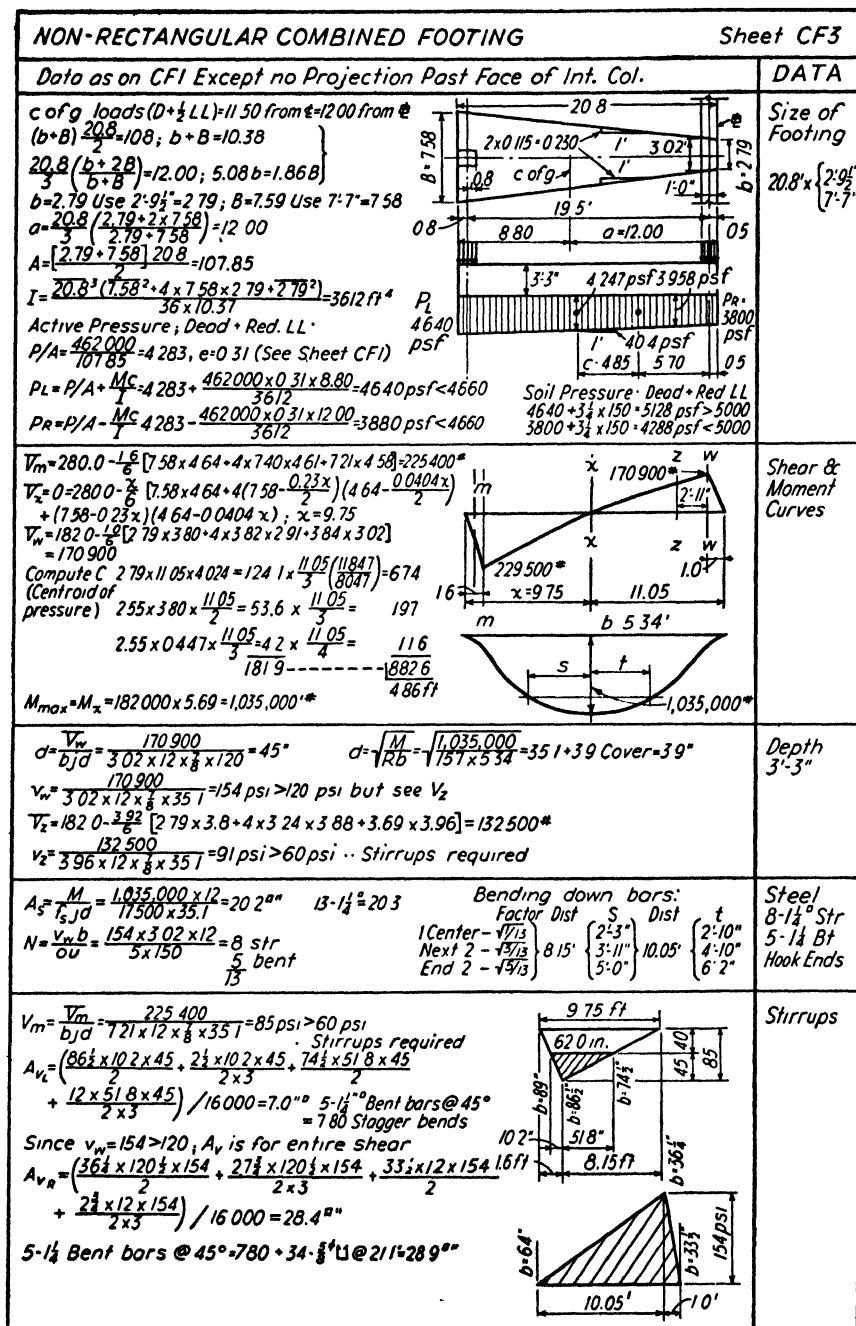 NON-RECTANGULAR COMBINED FOOTING Sheet CF3
Data as on CF1 Except no Projection Past Face of Int. Col. DATA
c of g loads (D+½ LL)=11.50 from ℄=12.00 from ⅊
(b+B) 20.8/2=108; b+B=10.38
20.8/3 (b+2B/b+B)=12.00; 5.08b=1.86B
b=2.79 Use 2'-9½"=2.79; B=7.59 Use 7'-7"=7.58
a=20.8/3 (2.79+2x7.58/2.79+7.58)=12.00
A=[2.79+7.58/2] 20.8=107.85
I=20.8³(7.58²+4x7.58x2.79+2.79²)/36x10.37=3612 ft⁴
Active Pressure; Dead + Red. LL.
P/A=462000/107.85=4283, e=0.31 (See Sheet CF1)
PL=P/A+Mc/I=4283+462000x0.31x8.80/3612=4640 psf<4660
PR=P/A-Mc/I 4283-462000x0.31x12.00/3612=3880 psf<4660
20.8
B=7.58
2x0.115=0.230
1'
3.02'
b=2.79
c of g
1'
0.8
1'-0"
19.5'
0.8
8.80
a=12.00
0.5
3'-3"
4247 psf
3958 psf
PL
4640
psf
PR=
3800
psf
1'
40.4 psf
c=4.85
5.70
0.5
Soil Pressure. Dead + Red LL
4640+3¼x150=5128 psf>5000
3800+3¼x150=4288 psf<5000
Size of
Footing
20.8'x{2'-9½"
7'-7"
Vm=280.0-1.6/6 [7.58x4.64+4x7.40x4.61+7.21x4.58]=225400#
Vx=0=280.0-x/6 [7.58x4.64+4(7.58-0.23x/2)(4.64-0.0404x/2)
+(7.58-0.23x)(4.64-0.0404x); x=9.75
Vw=182.0-1.0/6[2.79x3.80+4x3.82x2.91+3.84x3.02]
=170900
Compute C 2.79x11.05x4.024=124.1x11.05/3(11.847/8.047)=674
(Centroid of
pressure) 2.55x3.80x11.05/2=53.6 x 11.05/3= 197
2.55x0.447x11.05/3=4.2 x 11.05/4= 11.6
181.9 882.6
4.86ft
Mmax=Mx=182000x5.69=1,035,000'#
m
x
z
w
170900#
2'-11"
x
z
w
229500#
1.6
1.0'
x=9.75
11.05
m
b 5.34'
s
t
1,035,000'#
Shear &
Moment
Curves
d=Vw/bjd=170900/3.02x12x⅞x120=45"
d=√M/Rb=√1,035,000/157x5.34=35.1+3.9 Cover=39"
vw=170900/3.02x12x⅞x35.1=154 psi>120 psi but see Vz
Vz=182.0-3.92/6 [2.79x3.8+4x3.24x3.88+3.69x3.96]=132500#
vz=132500/3.96x12x⅞x35.1=91 psi>60 psi ∴ Stirrups required
Depth
3'-3"
As=M/fsjd=1,035,000x12/17500x35.1=20.2□" 13-1¼□=20.3
N=vwb/ou=154x3.02x12/5x150=8 str
5 bent
13
Bending down bars:
Factor Dist S Dist t
1 Center-√1/13 2'-3" 2'-10"
Next 2-√3/13 8.15' 3'-11" 10.05' 4'-10"
End 2-√5/13 5'-0" 6'2"
Steel
8-1¼□ Str
5-1¼ Bt
Hook Ends
Vm=Vm/bjd=225400/7.21x12x⅞x35.1=85psi>60 psi
∴ Stirrups required
AvL=(86½x10.2x45/2+2½x10.2x45/2x3+74½x51.8x45/2
+12x51.8x45/2x3)/16000=7.0"□ 5-1¼"□ Bent bars@45°
=7.80 Stagger bends
Since vw=154>120; Av is for entire shear
AvR=(36¼x120½x154/2+27¾x120½x154/2x3+33½x12x154/2
+2¾x12x154/2x3)/16000=28.4□"
5-1¼ Bent bars @45°=7.80+34-⅝ᶲ⊔@21.1=28.9□"
9.75 ft
62.0 in.
40
45
85
b=89"
b=86½"
b=74½"
10.2"
51.8"
1.6 ft
8.15ft
b=36¼"
b=64"
b=33½"
154psi
10.05'
1.0'
Stirrups